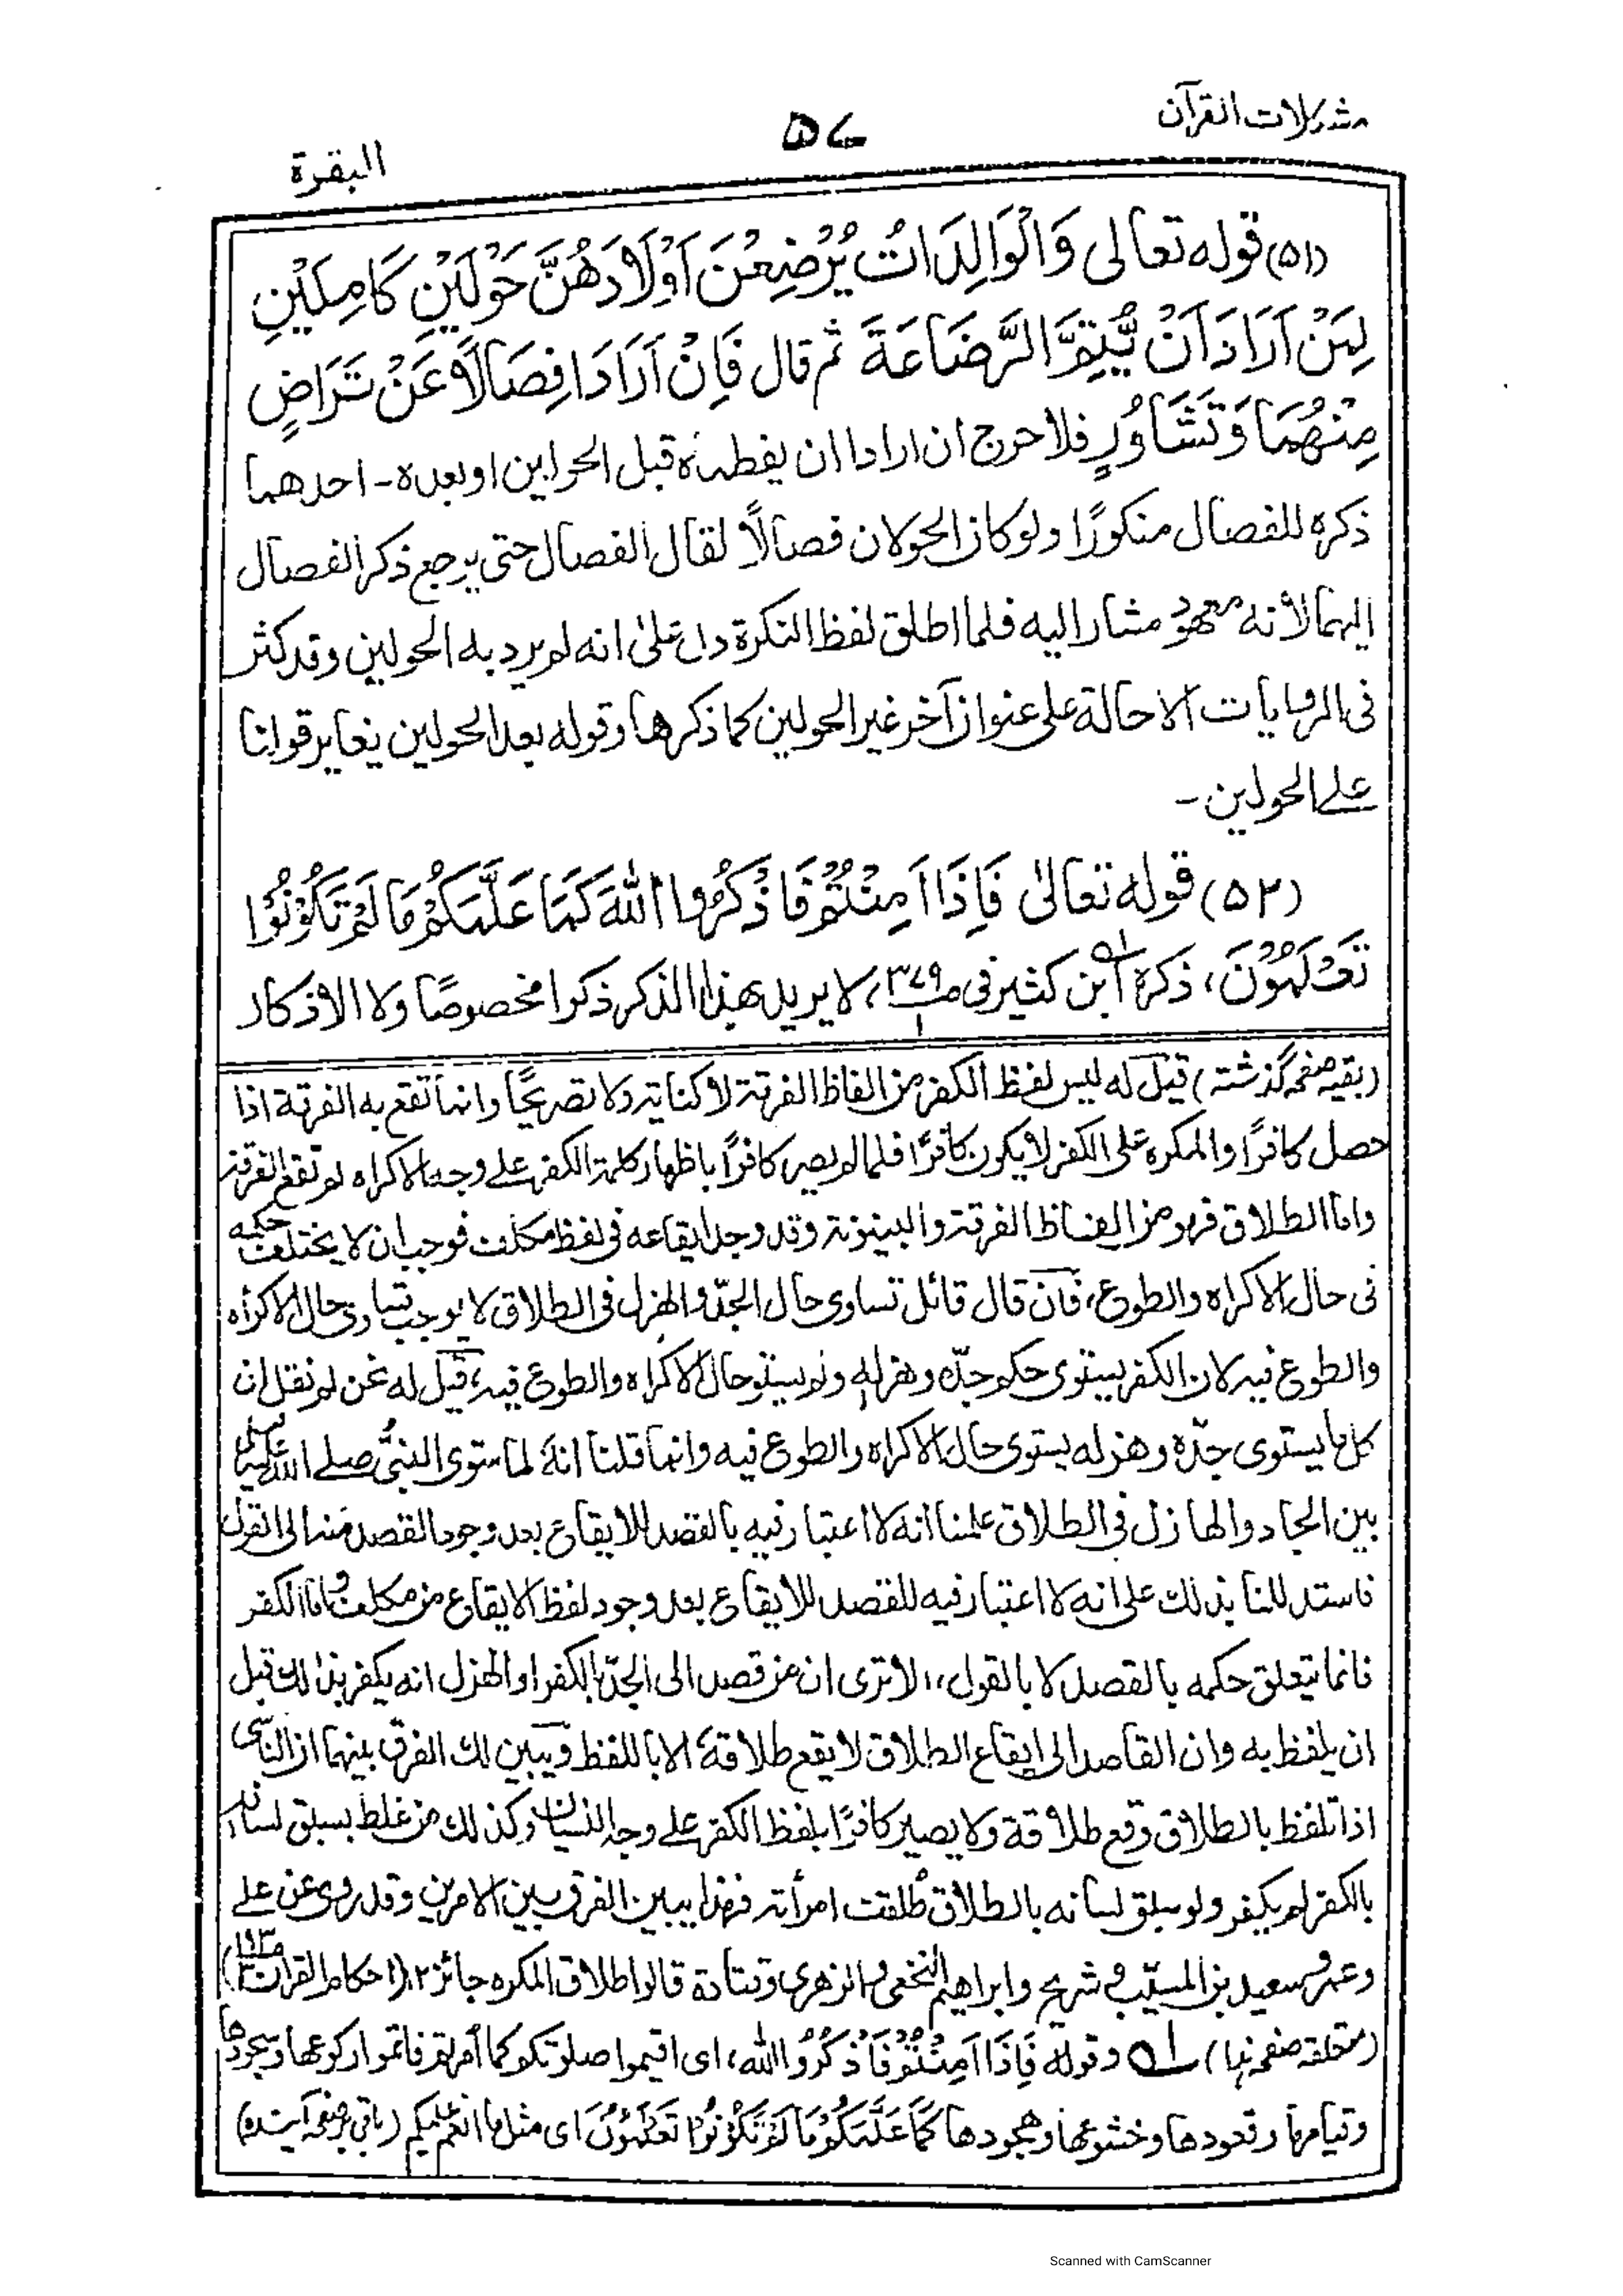 مشکلات القرآن
۵۷
البقرة
(۵۱) قوله تعالى وَالْوَالِدَاتُ يُرْضِعْنَ اَوْلَادَهُنَّ حَوْلَيْنِ كَامِلَيْنِ
لِمَنْ اَرَادَ اَنْ يُّتِمَّ الرَّضَاعَةَ ثم قال فَاِنْ اَرَادَا فِصَالًا عَنْ تَرَاضٍ
مِنْهُمَا وَتَشَاوُرٍ فلا حرج ان ارادا ان يفطماه قبل الحولين او بعده - احدهما
ذكره للفصال منكورًا ولو كان الحولان فصالًا لقال الفصال حتى يرجع ذكر الفصال
اليهما لانه معهود مشار اليه فلما اطلق لفظ النكرة دل على انه لم يرد به الحولين وقد كثر
فى الروايات الاحالة على عنوان آخر غير الحولين كما ذكرها وقوله بعد الحولين يغاير قولنا
على الحولين -
(۵۲) قوله تعالىٰ فَاِذَا اَمِنْتُمْ فَاذْكُرُوا اللهَ كَمَا عَلَّمَكُمْ مَا لَمْ تَكُوْنُوْا
تَعْلَمُوْنَ، ذكره ابن كثير فى ص۳۷۹، لا يريد بهذا الذكر ذكرا مخصوصًا ولا الاذكار
(بقیه صفحه گذشته) قيل له ليس لفظ الكفر من الفاظ الفرقة لا كناية ولا تصريحًا وانما تقع به الفرقة اذا
حصل كافرًا والمكره على الكفر لا يكون كافرًا فلما لم يصر كافرًا باظهار كلمة الكفر على وجه الاكراه لم تقع الفرقة
واما الطلاق فهو من الفاظ الفرقة والبينونة وقد وجد ايقاعه فى لفظ مكلف فوجب ان لا يختلف حكمه
فى حال الاكراه والطوع، فان قال قائل تساوى حال الجدّ والهزل فى الطلاق لا يوجب تساوى حال الاكراه
والطوع فيه لان الكفر يستوى حكم جدّه وهزله ولم يستو حال الاكراه والطوع فيه، قيل له نحن لم نقل ان
كل ما يستوى جدّه وهزله يستوى حال الاكراه والطوع فيه وانما قلنا انه لما سوى النبىّ صلى الله عليه وسلم
بين الجاد والهازل فى الطلاق علمنا انه لا اعتبار فيه بالقصد للايقاع بعد وجود القصد منه الى القول
فاستدللنا بذلك على انه لا اعتبار فيه للقصد للايقاع بعد وجود لفظ الايقاع من مكلف واما الكفر
فانما يتعلق حكمه بالقصد لا بالقول، الا ترى ان من قصد الى الجدّ بالكفر او الهزل انه يكفر بذلك قبل
ان يلفظ به وان القاصد الى ايقاع الطلاق لا يقع طلاقه الا باللفظ ويبين لك الفرق بينهما ان الناسى
اذا تلفظ بالطلاق وقع طلاقه ولا يصير كافرًا بلفظ الكفر على وجه النسيان وكذلك من غلط بسبق لسانه
بالكفر لم يكفر ولو سبق لسانه بالطلاق طُلقت امرأته فهذا يبين الفرق بين الامرين وقد روى عن على
وعمر وسعيد بن المسيّب وشريح وابراهيم النخعى والزهرى وقتادة قالوا طلاق المكره جائز ۱۲، (احكام القرآن ص۱۹۳)
(متعلقه صفحه هذا) ۱ه وقوله فَاِذَا اَمِنْتُمْ فَاذْكُرُوا الله، اى اقيموا صلوتكم كما اُمرتم فاتموا ركوعها وسجودها
وقيامها وقعودها وخشوعها وهجودها كَمَا عَلَّمَكُمْ مَا لَمْ تَكُوْنُوْا تَعْلَمُوْنَ اى مثل ما انعم عليكم (باقی بر صفحه آینده)
Scanned with CamScanner